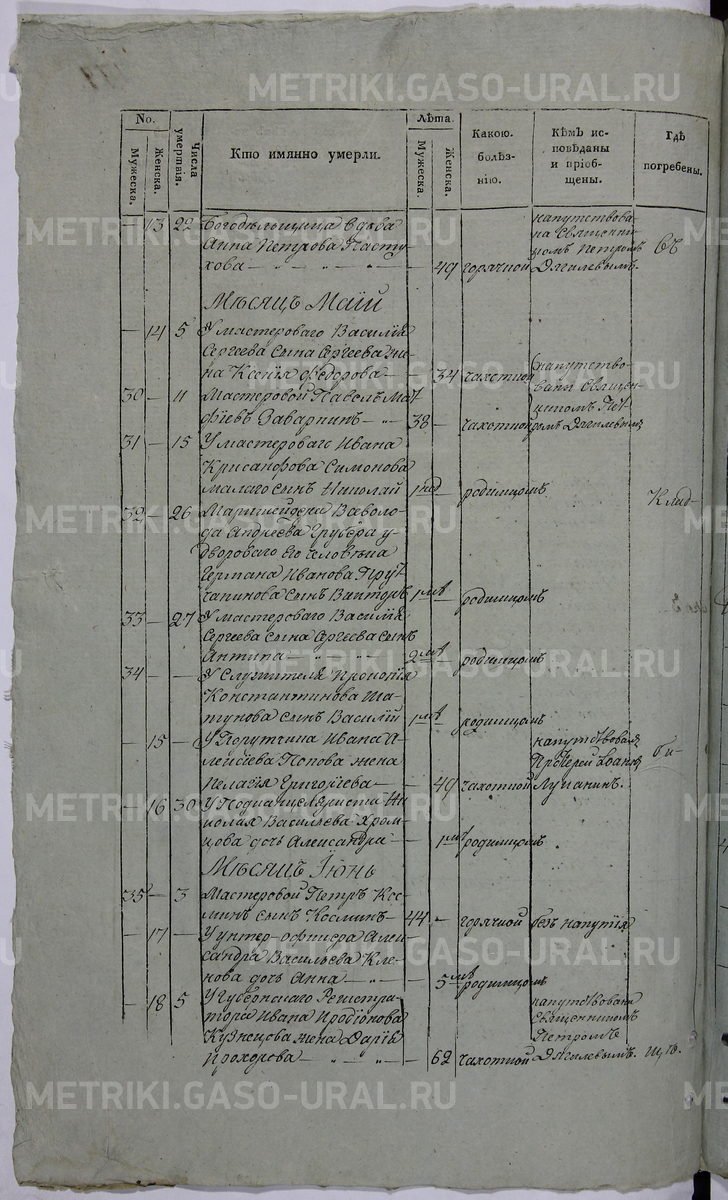 METRIKI.GASO-URAL.RU
No.
Мужеска.
Женска.
Числа умертвія.
Кто имянно умерли.
Лѣта.
Мужеска.
Женска.
Какою.
болѣз-
нію.
Кѣмъ ис-
повѣданы
и пріоб-
щены.
Гдѣ
погребены.
— 13 22 Богодѣльщица вдова
Анна Петрова Пасту-
хова — — 49 горячкой
напутствова-
на Священни-
комъ Петромъ
Дягилевымъ.
Мѣсяцъ Маій
— 14 5 У мастероваго Василія
Сергѣева сына Сергѣева же-
на Ксенія Федорова — 34 чахоткой
30 — 11 Мастеровой Павелъ Мат-
фѣевъ Заварнинъ — 38 — чахоткой
напутство-
ваны Священ-
никомъ Пет-
ромъ Дягилевымъ
31 — 15 У мастероваго Ивана
Крисанфова Симонова
малаго сынъ Николай 1 нед — родимцомъ
32 — 26
Андреева Грубера у
двороваго его человѣка
Германа Иванова
сынъ Викторъ 1 мѣ — родимцомъ
33 — 27 У мастероваго Василія
Сергѣева сына Сергѣева сынъ
Антипа — — 2 мѣ — родимцомъ
34 — — У Служителя Прокопія
Константинова Ша-
тунова сынъ Василій 1 мѣ — родимцомъ
— 15 — У Порутчика Ивана А-
лексѣева Попова жена
Пелагія Григорьева — — 49 чахоткой
напутствовалъ
Протоіерей Іоаннъ
Лупанинъ.
— 16 30 У Подканцеляриста Ни-
колая Васильева Хром-
цова дочь Александра — — 1 мѣ родимцомъ
Мѣсяцъ Іюнь
35 — 3 Мастеровой Петръ Кос-
минъ сынъ Косминъ — 44 — горячкой безъ напутія
— 17 — У унтер-офицера Алек-
сандра Васильева Кле-
нова дочь Анна — — 5 мѣ родимцомъ
— 18 5 У Губернскаго Регистра-
тора Ивана Иродіонова
Кузнецова жена Дарія
Прохорова — — — 62 чахоткой
напутствована
Священникомъ
Петромъ
Дягилевымъ.